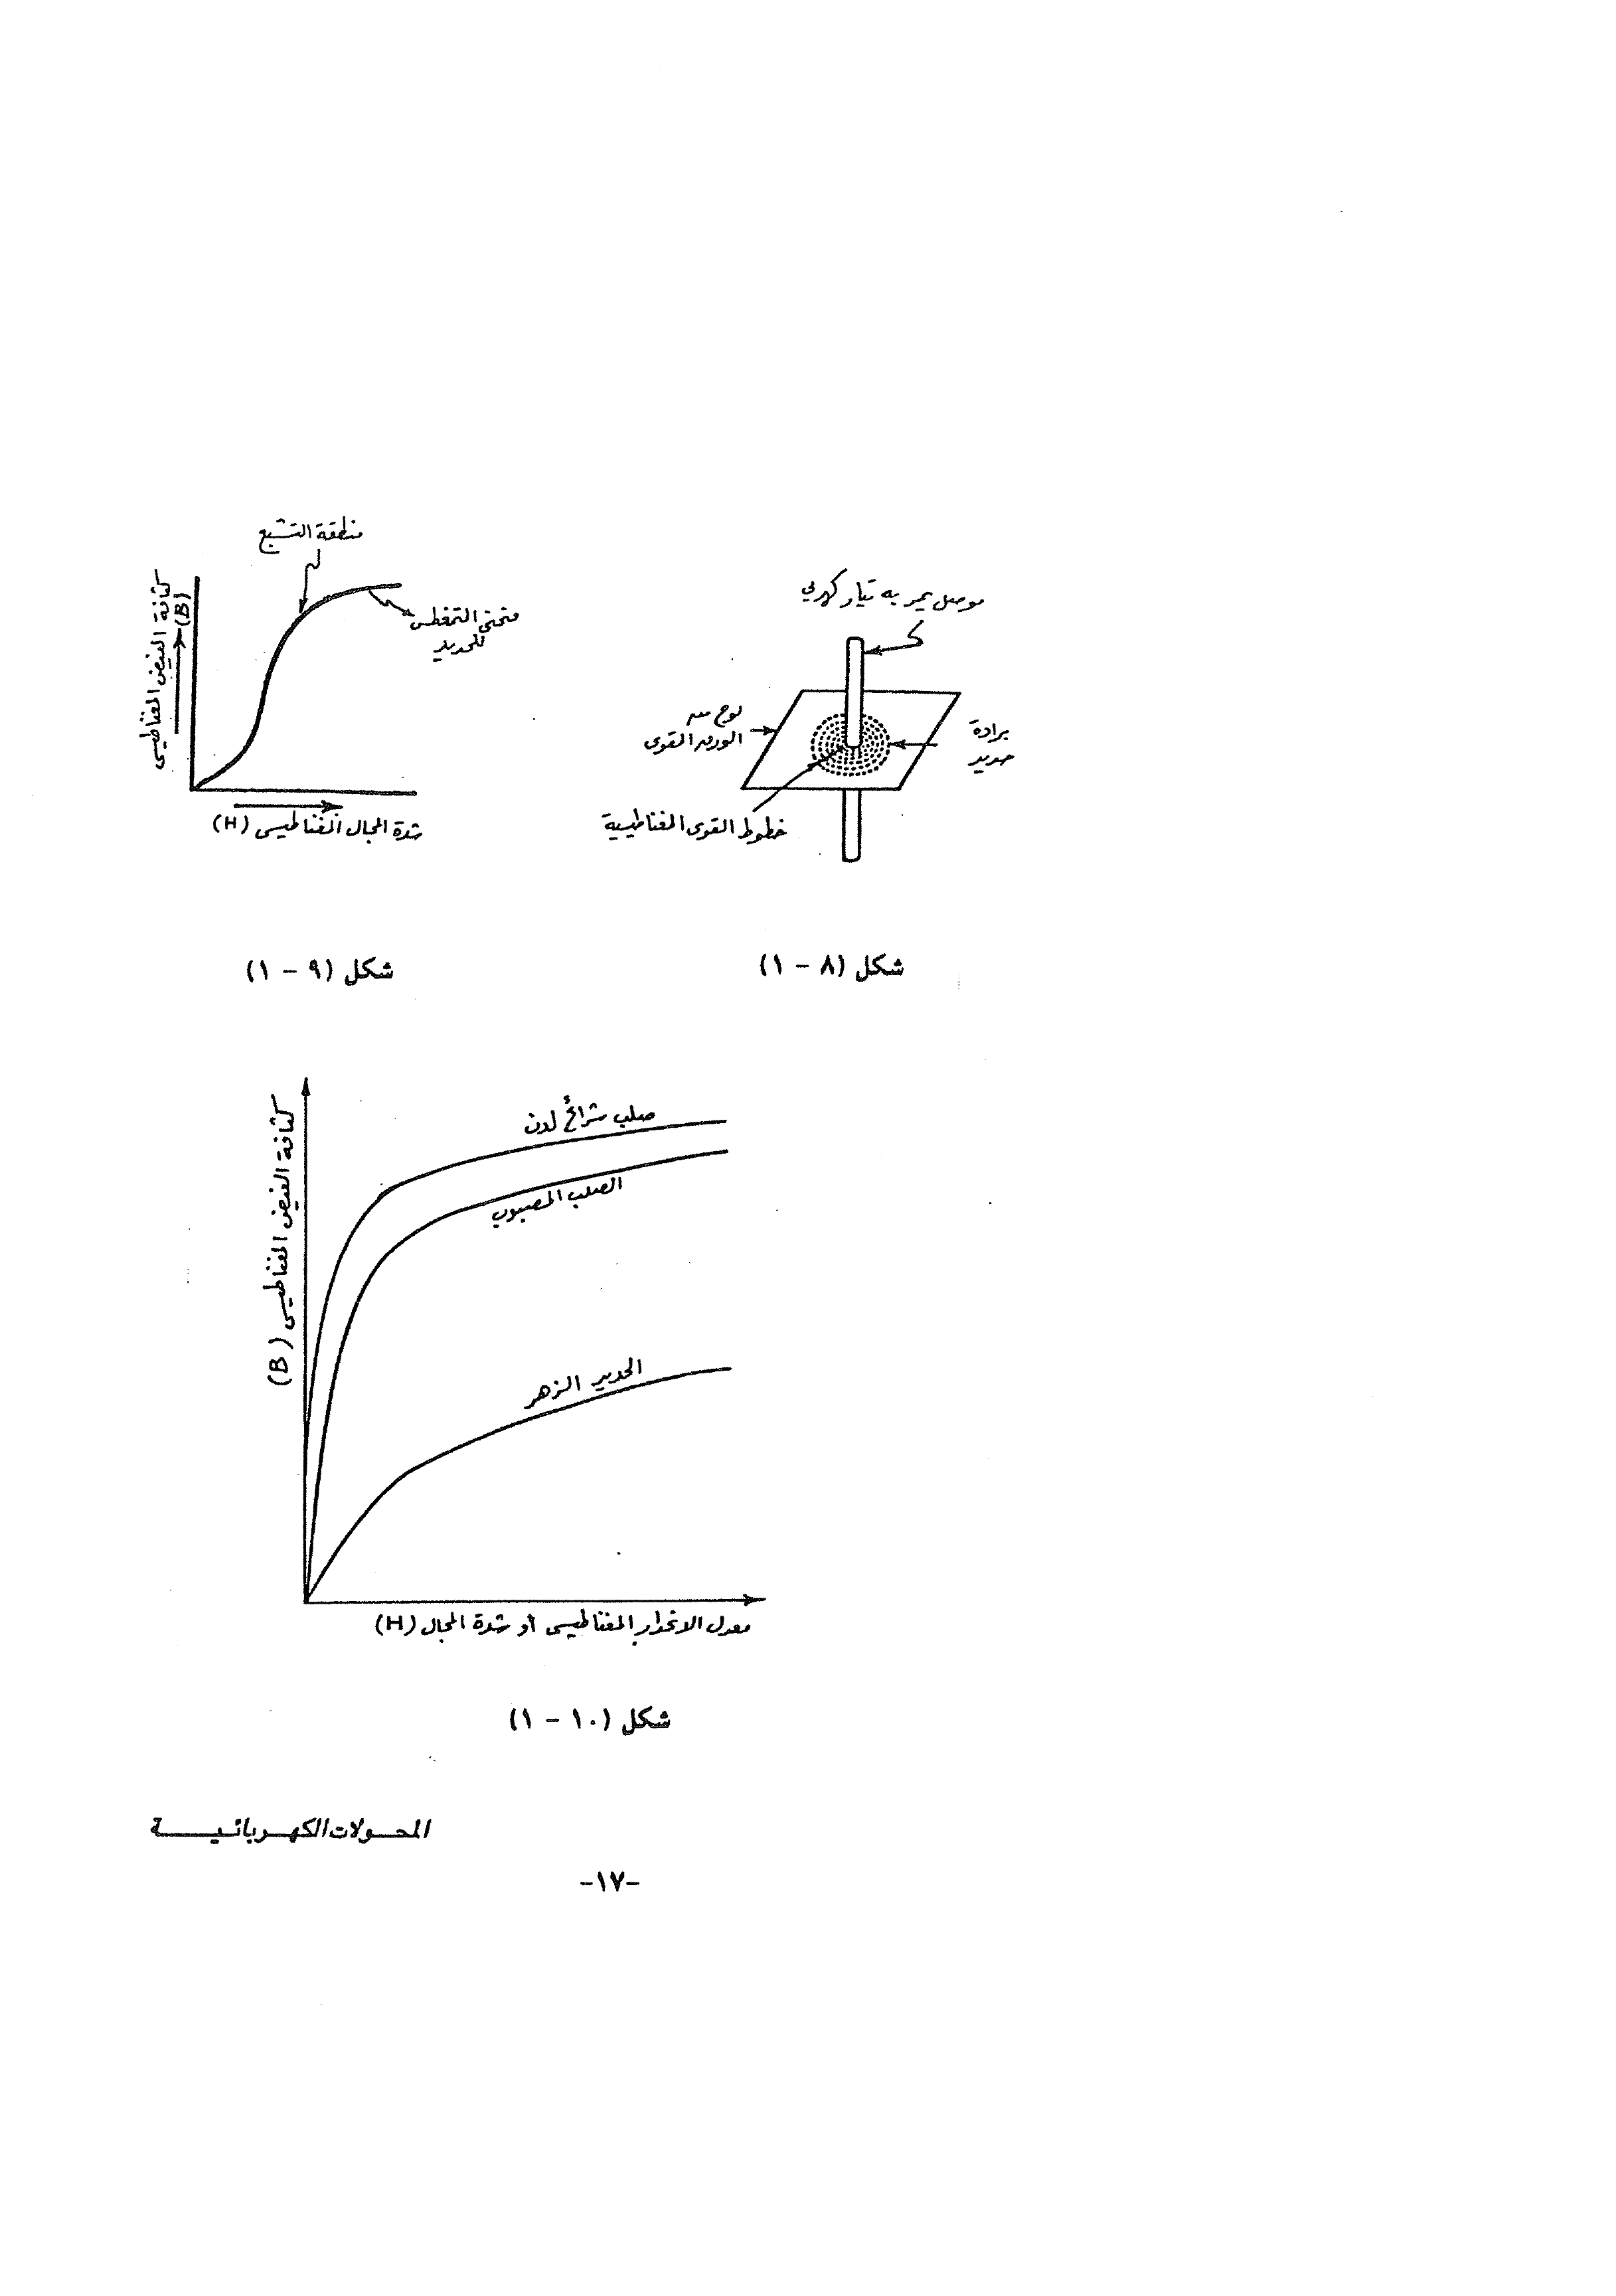 موصل يمر به تيار كهربي
لوح من
الورق القوى
برادة
حديد
خطوط القوى المغناطيسية
شكل (٨ - ١)
منطقة التشبع
منحنى التمغطس
للحديد
كثافة الفيض المغناطيسى
(B)
شدة المجال المغناطيسى (H)
شكل (٩ - ١)
صلب شرائح لدن
الصلب المصبوب
الحديد الزهر
كثافة الفيض المغناطيسى (B)
معدل الانحدار المغناطيسى أو شدة المجال (H)
شكل (١٠ - ١)
المحولات الكهربائية
-١٧-